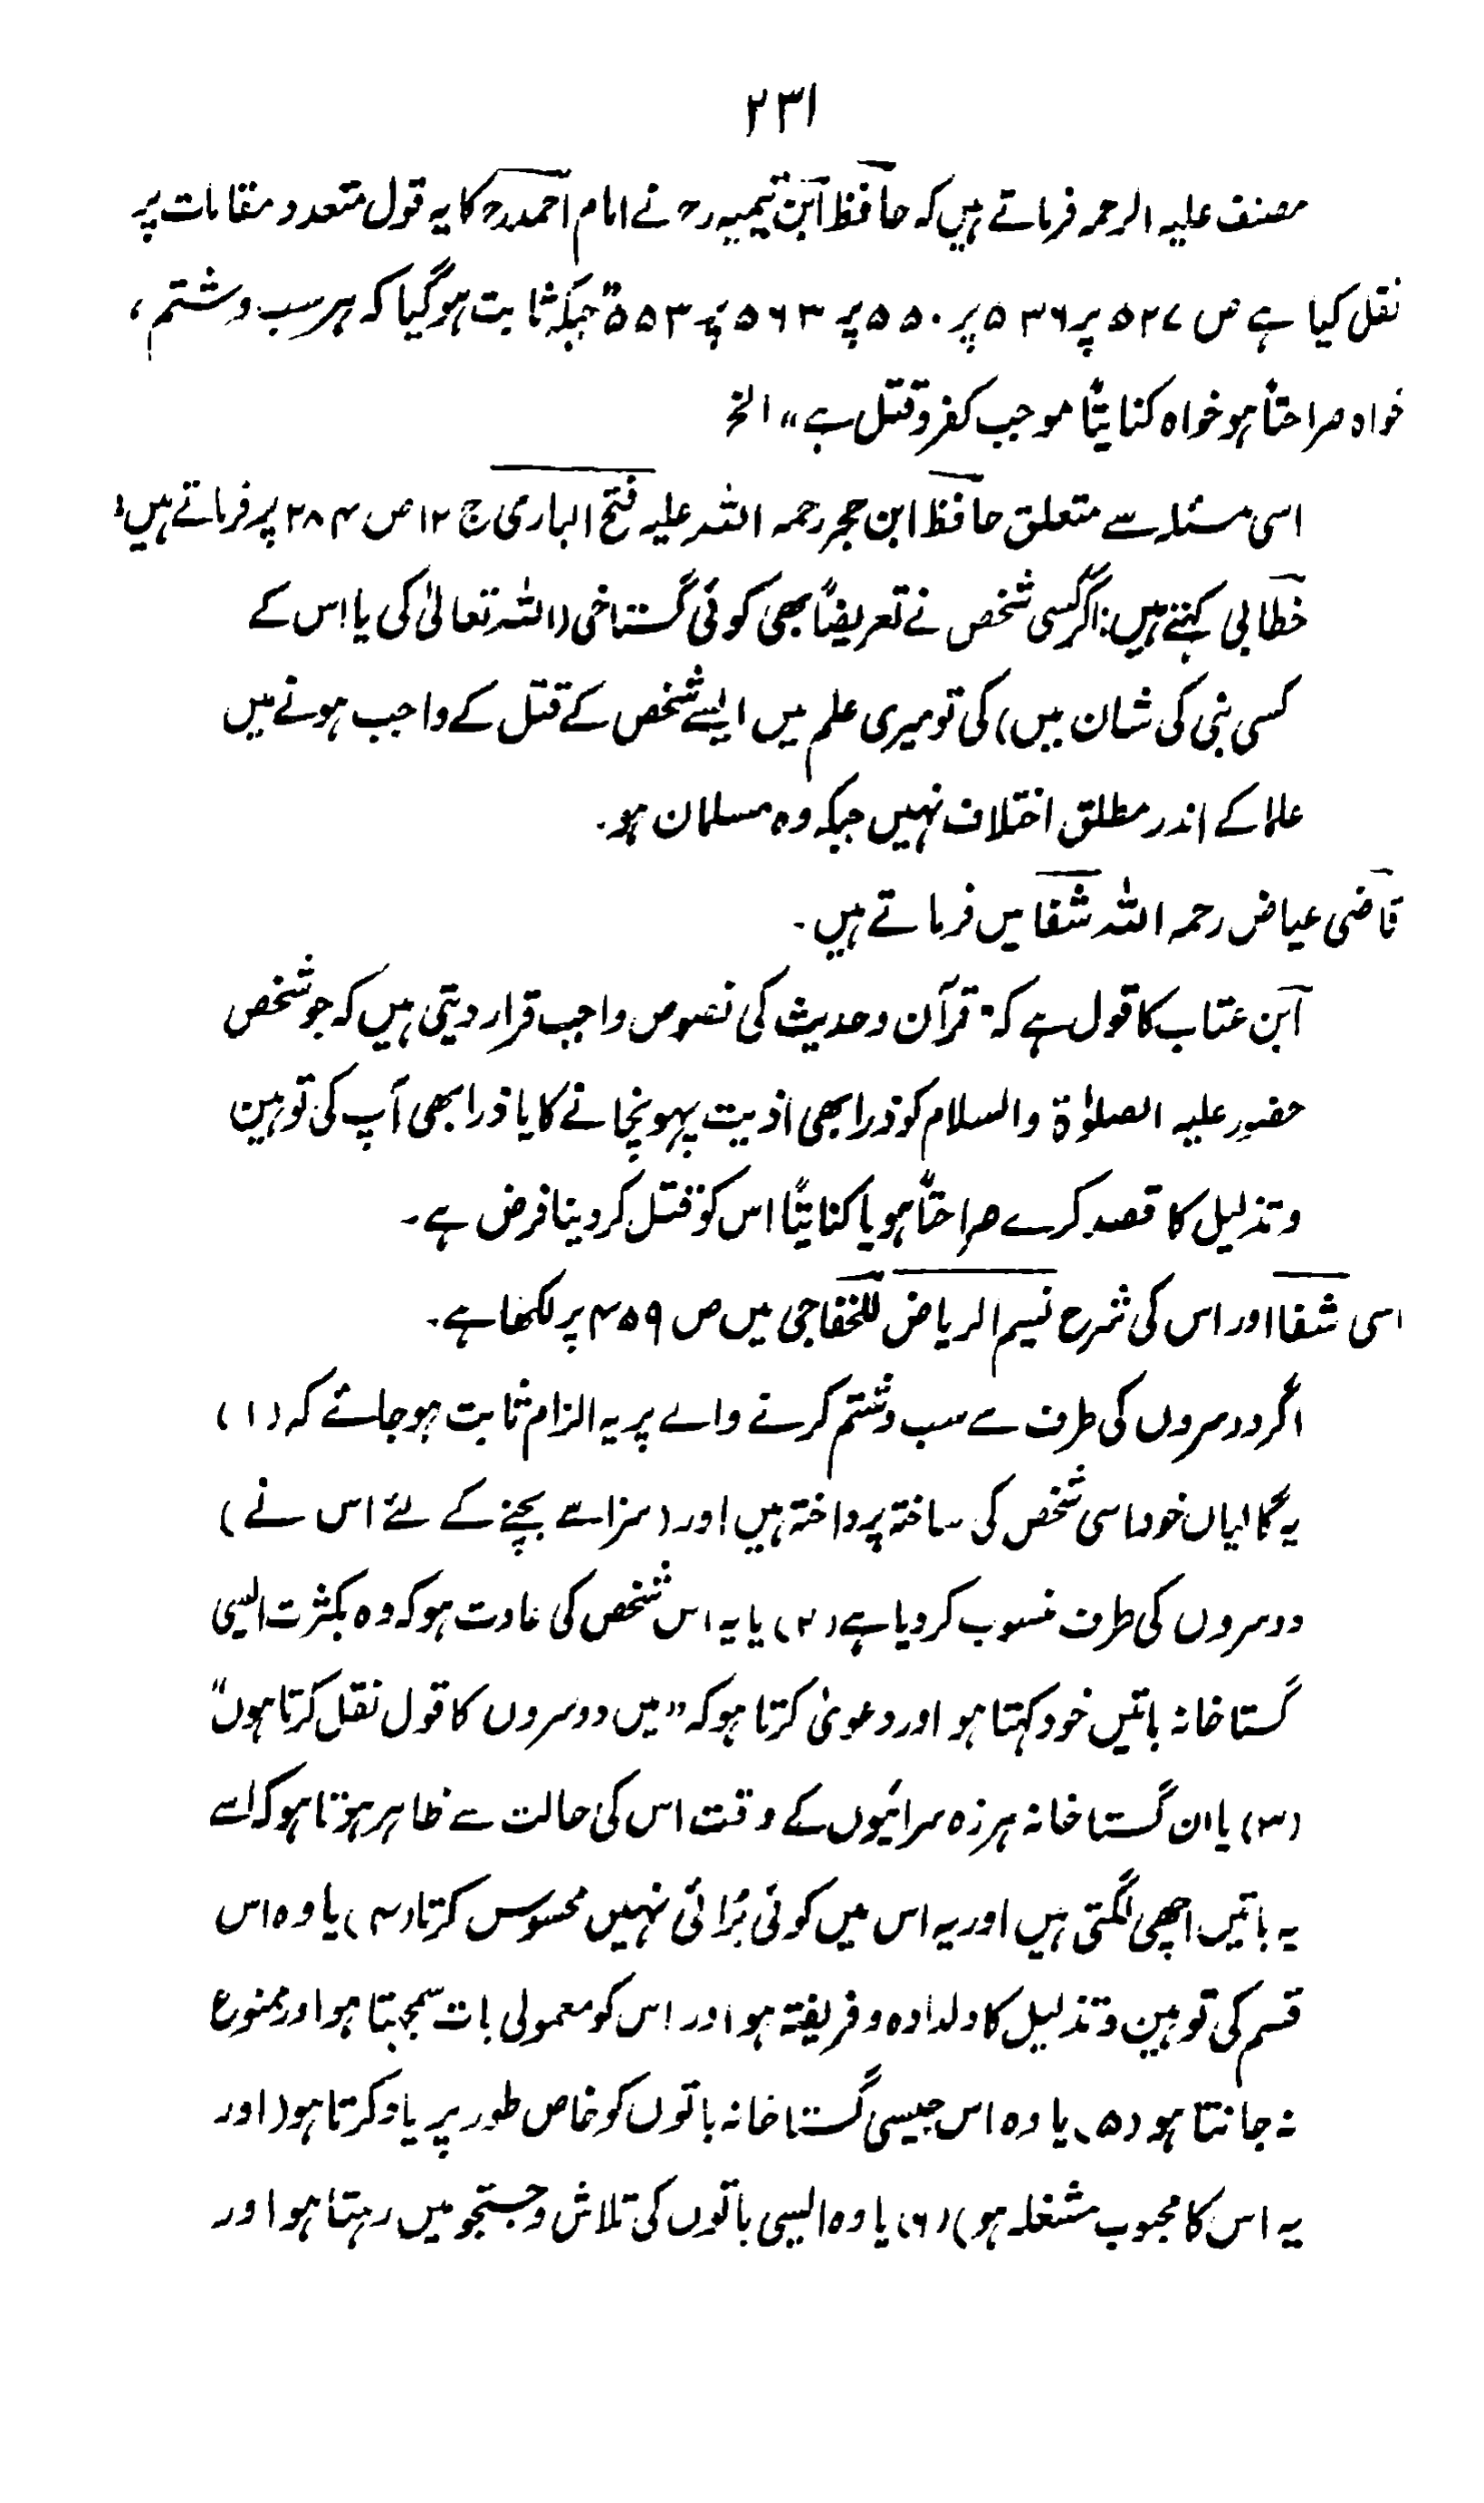 ۲۳۱
مصنف علیہ الرحمہ فرماتے ہیں کہ حافظ ابن تیمیہ رح نے امام احمد رح کا یہ قول متعدد مقامات پر
نقل کیا ہے ص ۵۲۷ پر ۵۳۶ پر ۵۵۰ پر ۵۶۳ پر ۵۵۳ "جبکہ ثابت ہوگیا کہ ہر سب و شتم،
خواہ صراحتاً ہو خواہ کنایتاً موجب کفر و قتل ہے" الخ
اسی مسئلہ سے متعلق حافظ ابن حجر رحمہ اللہ علیہ فتح الباری ج ۱۲ ص ۲۸۴ پر فرماتے ہیں:
خطابی کہتے ہیں: اگر کسی شخص نے تعریضاً بھی کوئی گستاخی (اللہ تعالیٰ کی یا اس کے
کسی نبی کی شان میں) کی تو میری علم میں ایسے شخص کے قتل کے واجب ہونے میں
علما کے اندر مطلق اختلاف نہیں جبکہ وہ مسلمان ہو۔
قاضی عیاض رحمہ اللہ شفا میں فرماتے ہیں۔
ابن عتاب کا قول ہے کہ "قرآن و حدیث کی نصوص واجب قرار دیتی ہیں کہ جو شخص
حضور علیہ الصلوٰۃ والسلام کو ذرا بھی اذیت پہونچانے کا یا ذرا بھی آپ کی توہین
و تذلیل کا قصد کرے صراحتاً ہو یا کنایتاً اس کو قتل کر دینا فرض ہے۔
اسی شفا اور اس کی شرح نسیم الریاض للخفاجی میں ص ۴۵۹ پر لکھا ہے۔
اگر دوسروں کی طرف سے سب و شتم کرنے والے پر یہ الزام ثابت ہو جائے کہ (۱)
یہ گالیاں خود اسی شخص کی ساختہ پرداختہ ہیں اور (سزا سے بچنے کے لئے اس نے)
دوسروں کی طرف منسوب کر دیا ہے (۲) یا یہ اس شخص کی عادت ہو کہ وہ بکثرت ایسی
گستاخانہ باتیں خود کہتا ہو اور دعویٰ کرتا ہو کہ "میں دوسروں کا قول نقل کرتا ہوں"
(۳) یا ان گستاخانہ ہرزہ سرائیوں کے وقت اس کی حالت سے ظاہر ہوتا ہو کہ اسے
یہ باتیں اچھی لگتی ہیں اور یہ اس میں کوئی بُرائی نہیں محسوس کرتا (۴) یا وہ اس
قسم کی توہین و تذلیل کا دلدادہ و فریفتہ ہو اور اس کو معمولی بات سمجہتا ہو اور ممنوع
نہ جانتا ہو (۵) یا وہ اس جیسی گستاخانہ باتوں کو خاص طور پر یاد کرتا ہو (اور
یہ اس کا محبوب مشغلہ ہو) (۶) یا وہ ایسی باتوں کی تلاش و جستجو میں رہتا ہو اور